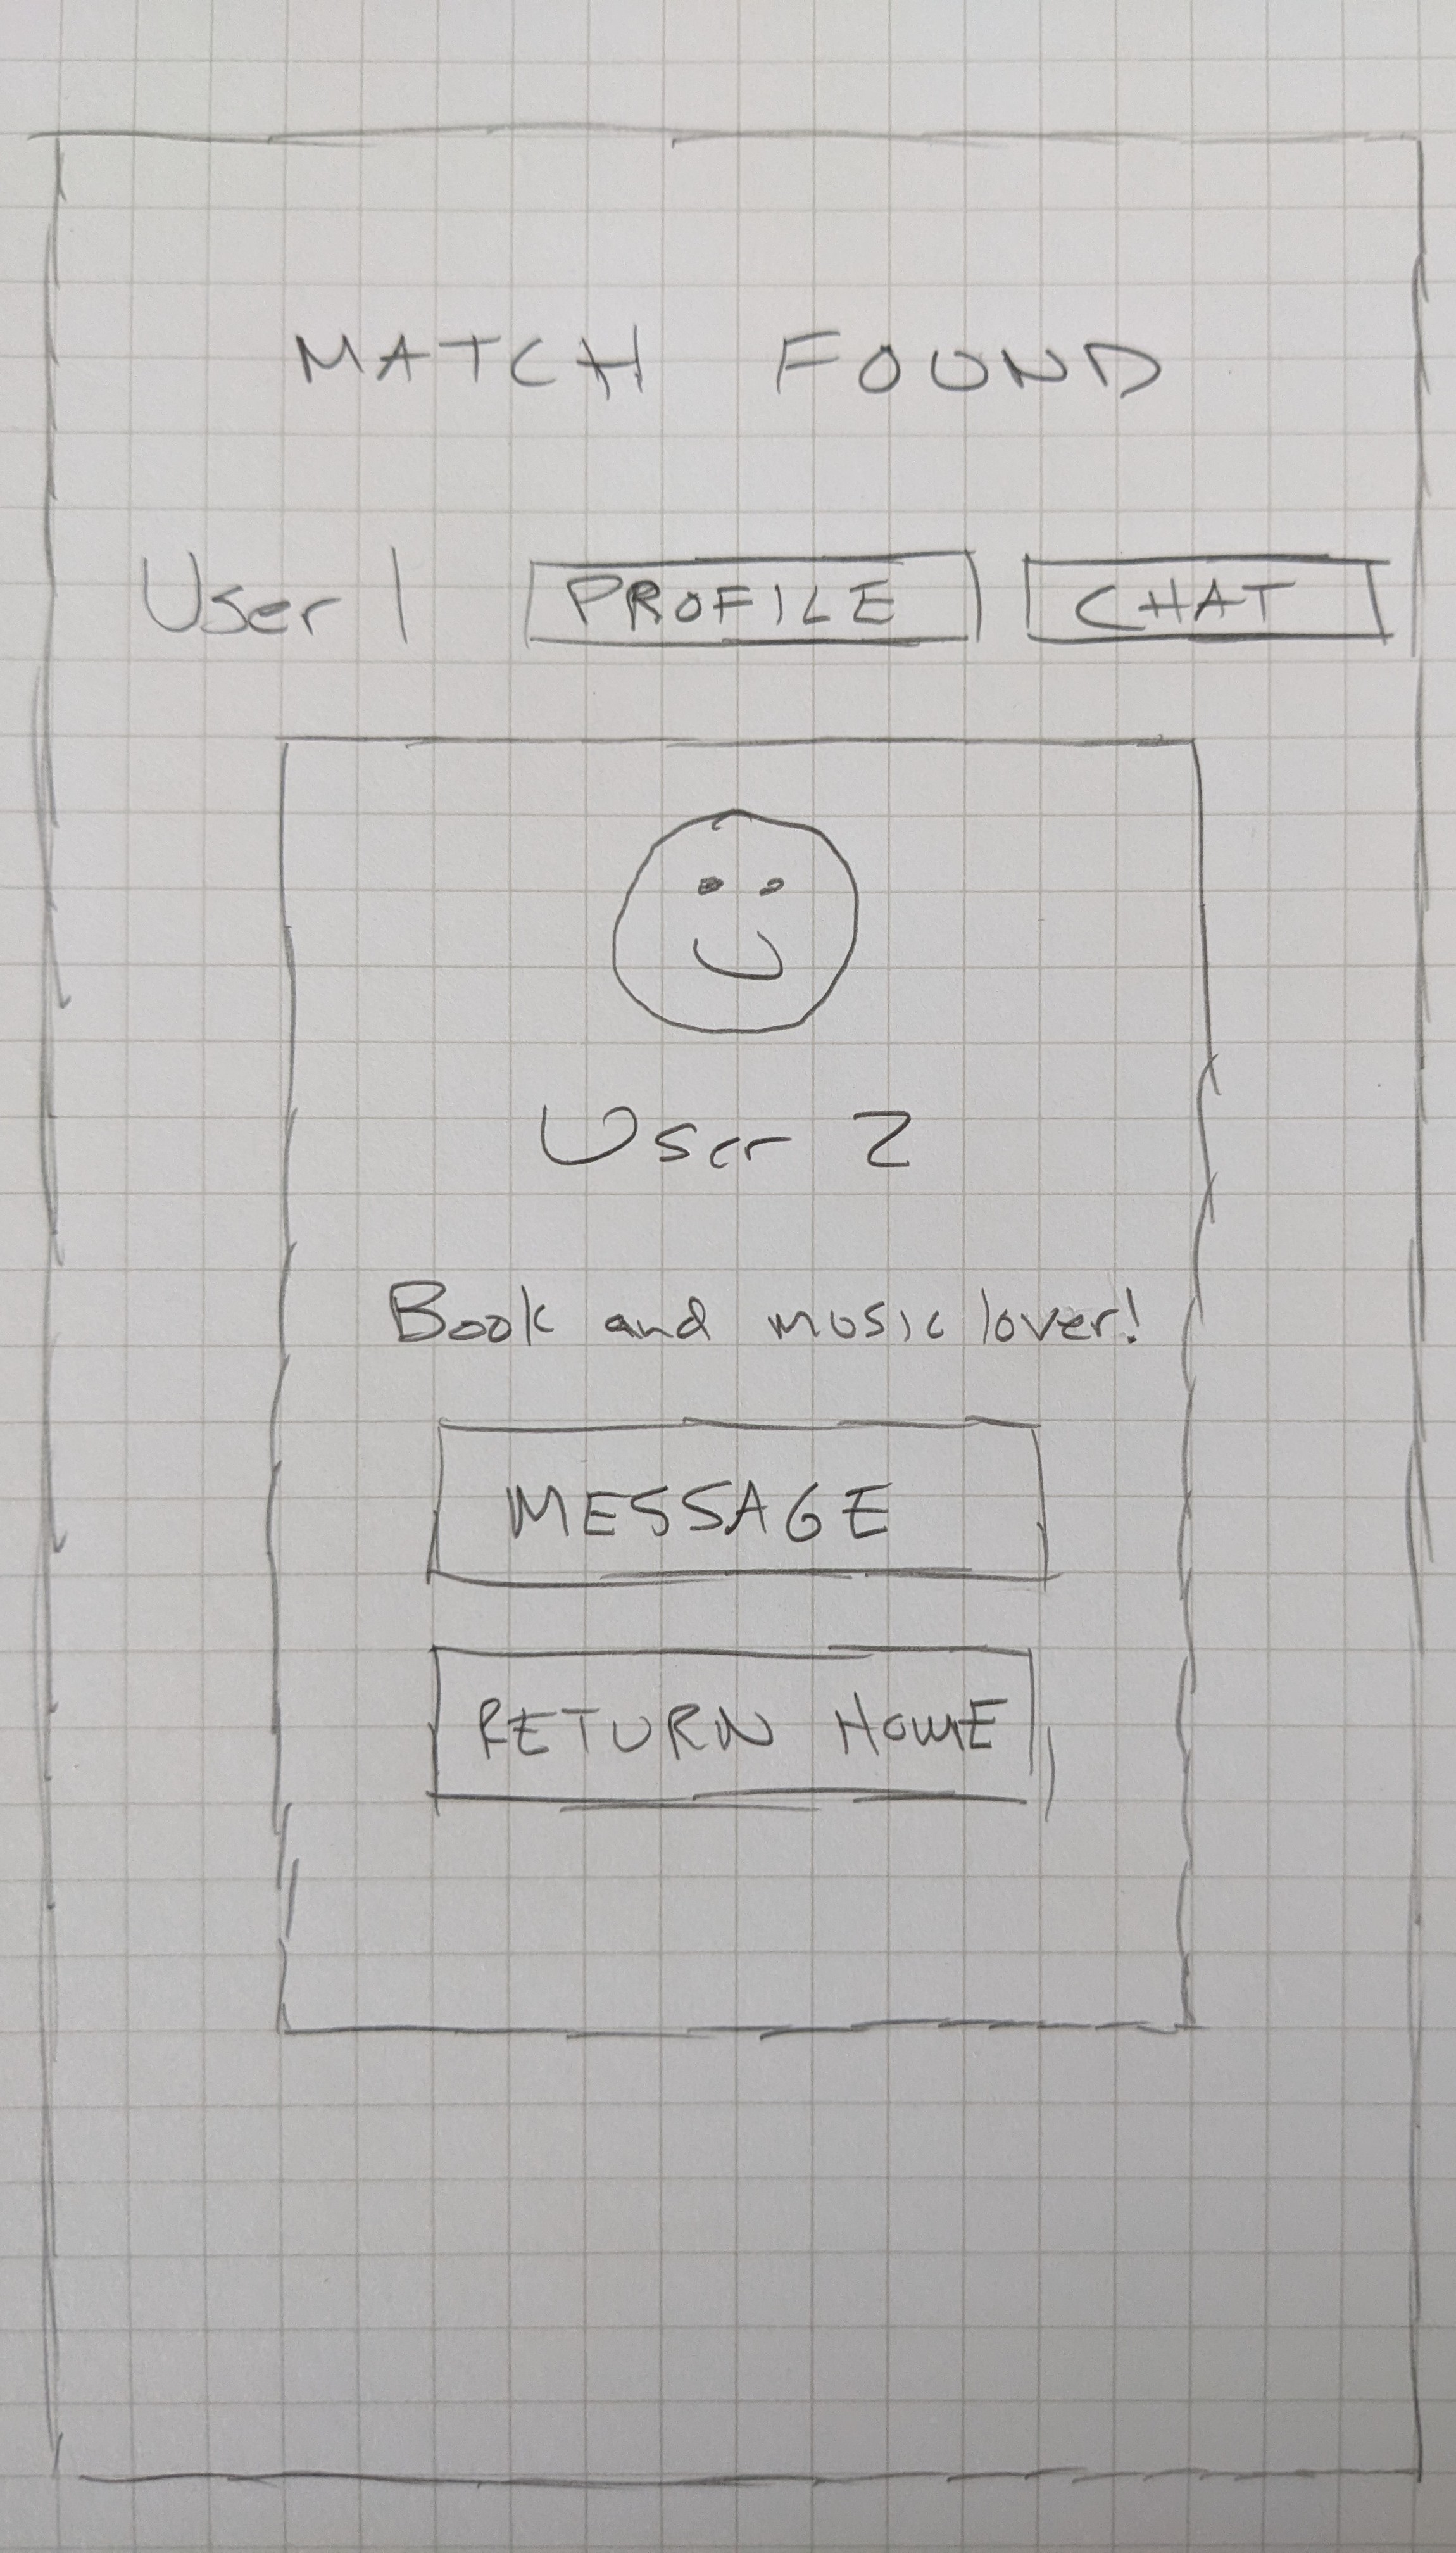 MATCH FOUND
User 1 PROFILE CHAT
User 2
Book and music lover!
MESSAGE
RETURN HOME